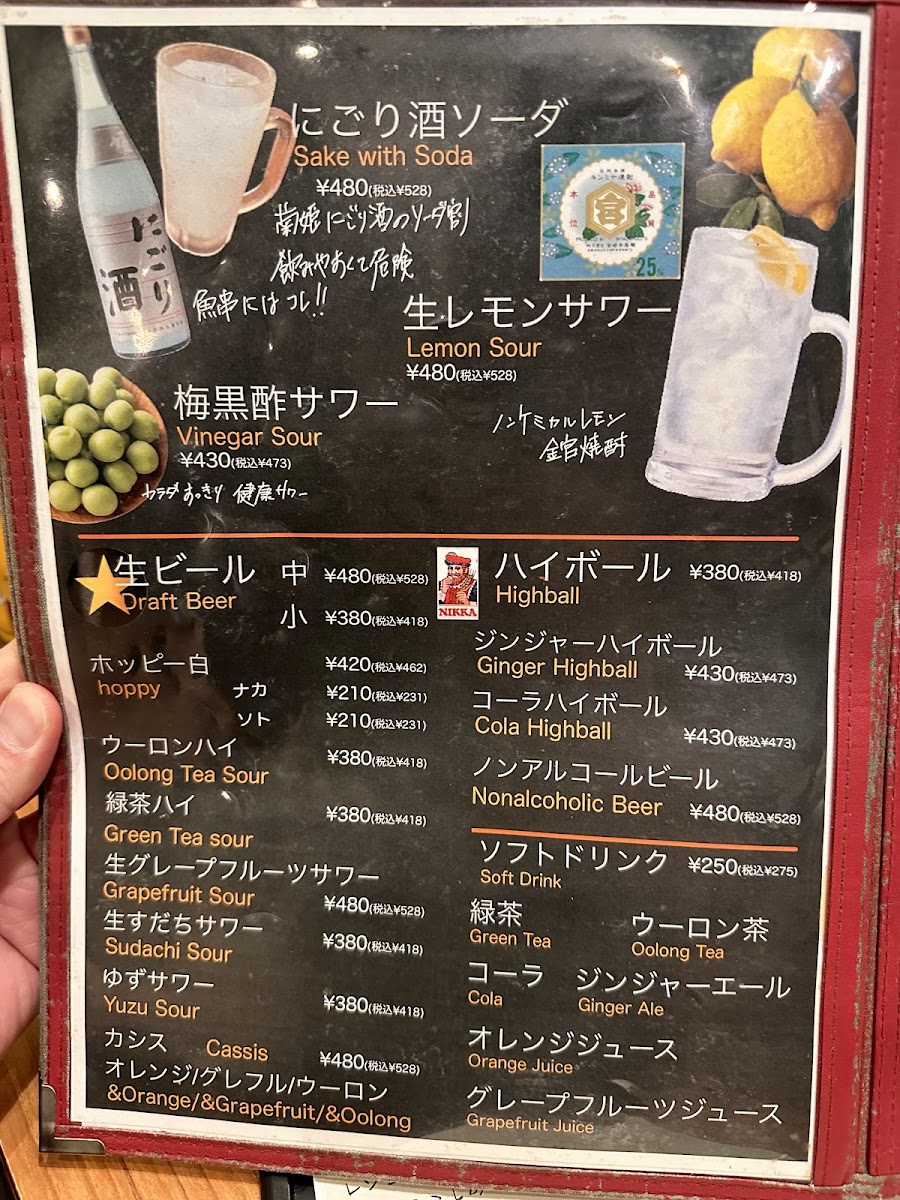 にごり酒ソーダ
Sake with Soda
¥480(税込¥528)
菊姫にごり酒のソーダ割
飲みやすくて危険
魚串にはコレ!!
にごり酒
キンミヤ焼酎
本位
品質
宮
25
生レモンサワー
Lemon Sour
¥480(税込¥528)
ノンケミカルレモン
金宮焼酎
梅黒酢サワー
Vinegar Sour
¥430(税込¥473)
カラダすっきり 健康サワー
生ビール 中 ¥480(税込¥528)
Draft Beer
小 ¥380(税込¥418)
ホッピー白 ¥420(税込¥462)
hoppy ナカ ¥210(税込¥231)
ソト ¥210(税込¥231)
ウーロンハイ
Oolong Tea Sour ¥380(税込¥418)
緑茶ハイ
Green Tea sour ¥380(税込¥418)
生グレープフルーツサワー
Grapefruit Sour ¥480(税込¥528)
生すだちサワー
Sudachi Sour ¥380(税込¥418)
ゆずサワー
Yuzu Sour ¥380(税込¥418)
カシス Cassis ¥480(税込¥528)
オレンジ/グレフル/ウーロン
&Orange/&Grapefruit/&Oolong
NIKKA
ハイボール ¥380(税込¥418)
Highball
ジンジャーハイボール
Ginger Highball ¥430(税込¥473)
コーラハイボール
Cola Highball ¥430(税込¥473)
ノンアルコールビール
Nonalcoholic Beer ¥480(税込¥528)
ソフトドリンク ¥250(税込¥275)
Soft Drink
緑茶 ウーロン茶
Green Tea Oolong Tea
コーラ ジンジャーエール
Cola Ginger Ale
オレンジジュース
Orange Juice
グレープフルーツジュース
Grapefruit Juice